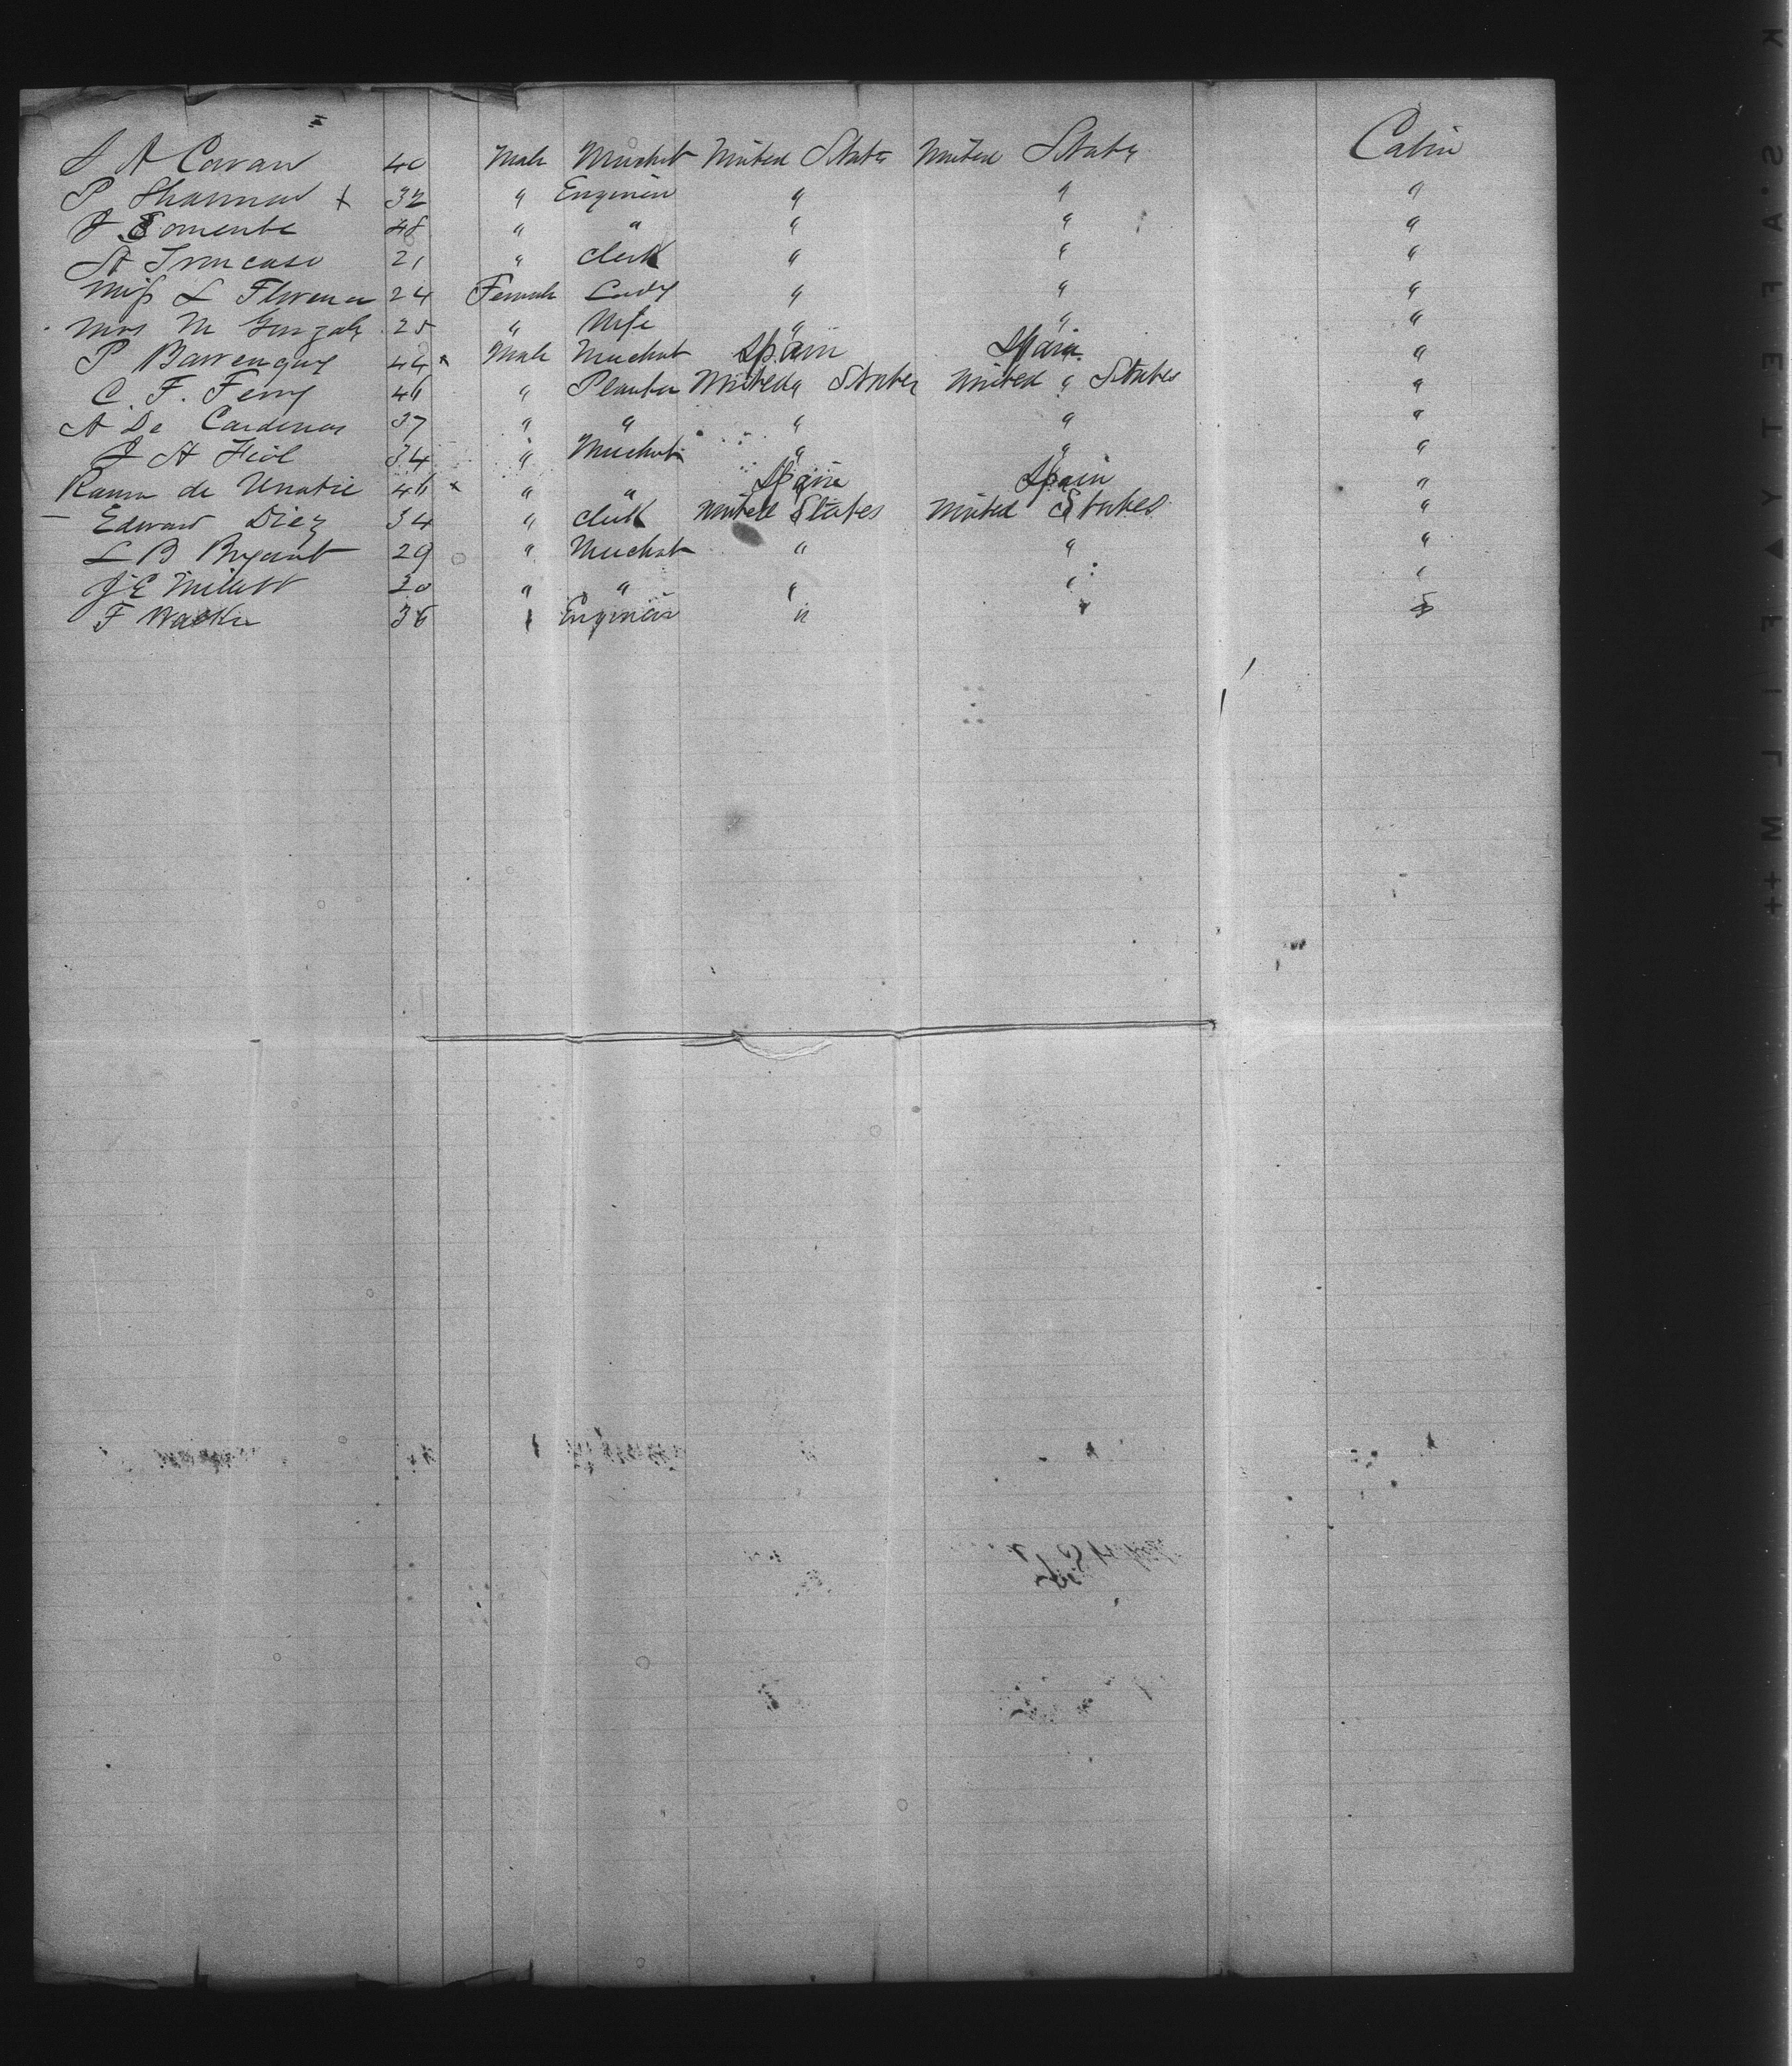 A Cavan 40 Male Merchat United States United States Cabin
P Shannon x 32 " Engineer " " "
J 48 " " " " "
A Troncoso 21 " Clerk " " "
Miss L Florence 24 Female Lady " " "
Mrs M Gonzalez 25 " Wife " " "
P 44 x Male Merchat Spain Spain "
C. F. Ferry 46 " Planter United " States United " States "
A De Cardenas 37 " " " " "
J A 34 " Merchat " " "
Ramon de 46 x " " Spain Spain "
Edward Diez 34 " Clerk United States United States "
L B Bryant 29 " Merchat " " "
J E Millett 30 " " " " "
F Walker 36 " Engineer " " "
SAFETY FILM